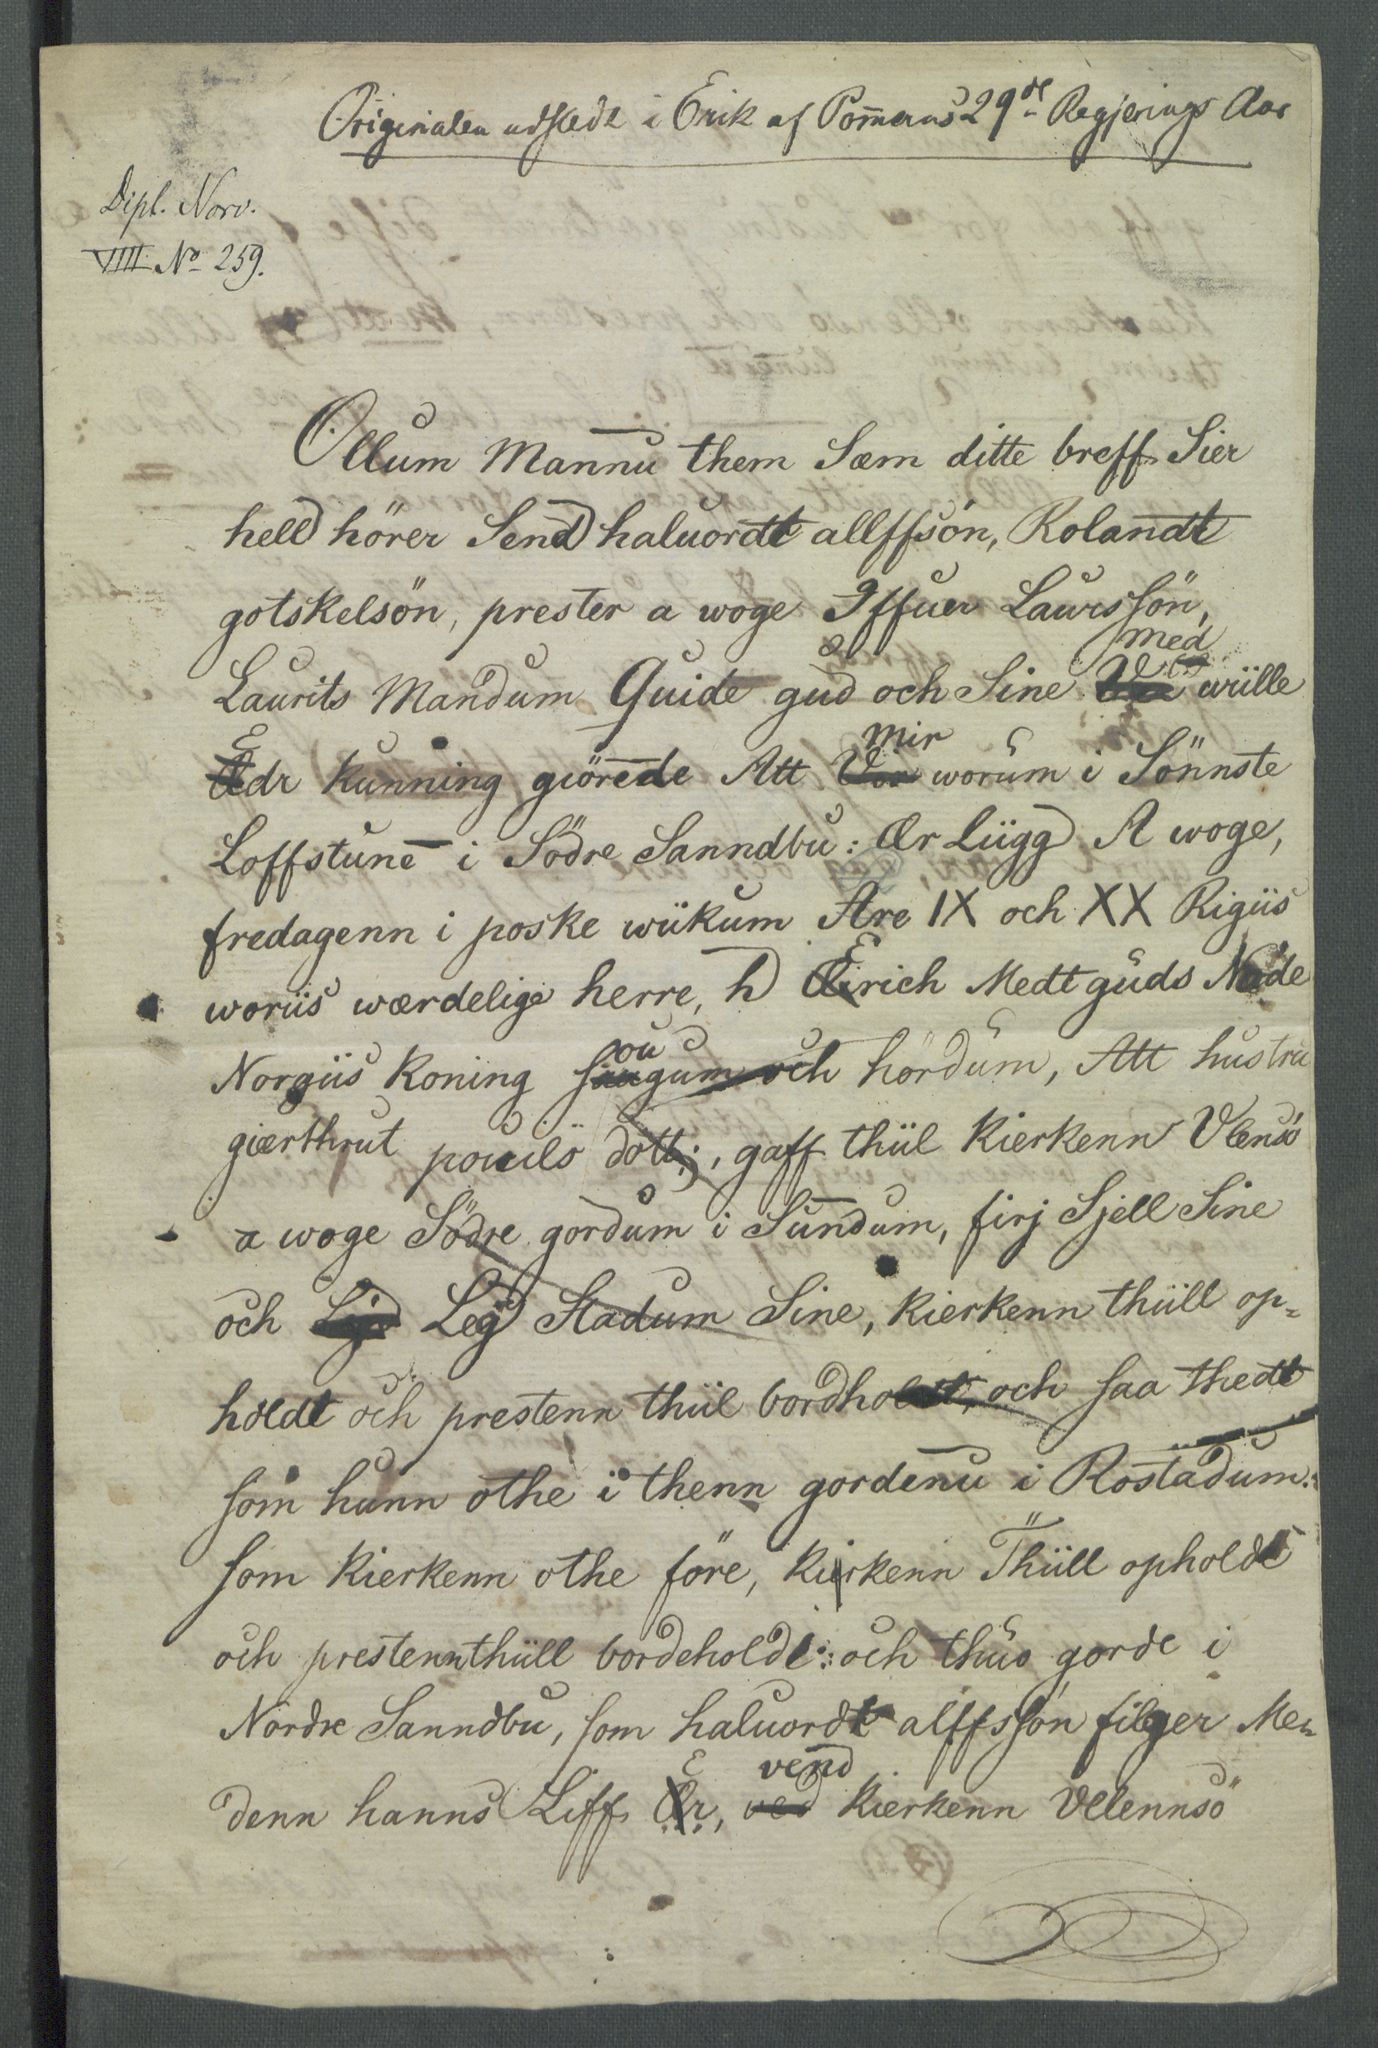 Originalen udstedt i Erik af Pommerns 29de Regjerings Aar
Dipl. Norv.
VIIII No 259.
Ollum Mannū them Sæm ditte breff Sier
hell hörer Send haluordt allffsön, Rolandt
gotskelsön, prester a woge Iffuer Laurssön,
Laurits Mandum Quide gud och Sine med wülle
Edr Kunning giörede Att mir worum i Sönnste
Loffstune i Södre Sanndbu: Ær Lügg A woge,
fredagenn i poske wükum Are IX och XX Rigüs
worüs wærdelige herre, h Eirich Medt guds Nade
Norgüs Koning sougum och hördum, Att hustru
giærthrut pouils dott:, gaff thüil Kierkenn Vlensö
a woge Södre gordum i Sundum, firj Sjell Sine
och Leg Stadum Sine, Kierkenn thüll op=
holdt och prestenn thüil bordholdt, och saa thedt
som hunn othe i thenn gordenū i Rostadum:
som Kierkenn othe före, Kierkenn Thüll opholdt
och prestenn thüll bordeholdt: och thus gorde i
Nordre Sanndbu, som haluordt alffssön filger Me=
denn hanns Liff Er, vend Kierkenn Vlennsö